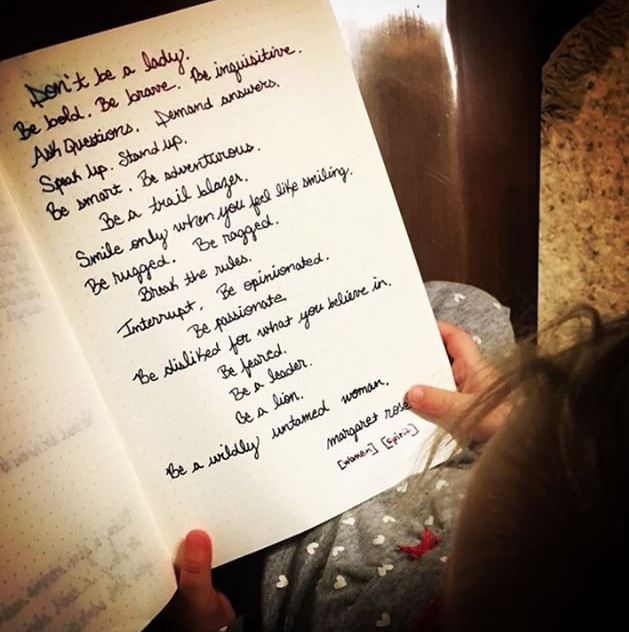 Don't be a lady.
Be bold. Be brave. Be inquisitive.
Ask Questions. Demand answers.
Speak up. Stand up.
Be smart. Be adventurous.
Be a trail blazer.
Smile only when you feel like smiling.
Be rugged. Be ragged.
Break the rules.
Interrupt. Be opinionated.
Be passionate.
Be disliked for what you believe in.
Be feared.
Be a leader.
Be a lion.
Be a wildly untamed woman.
margaret rose
[women] [spirit]